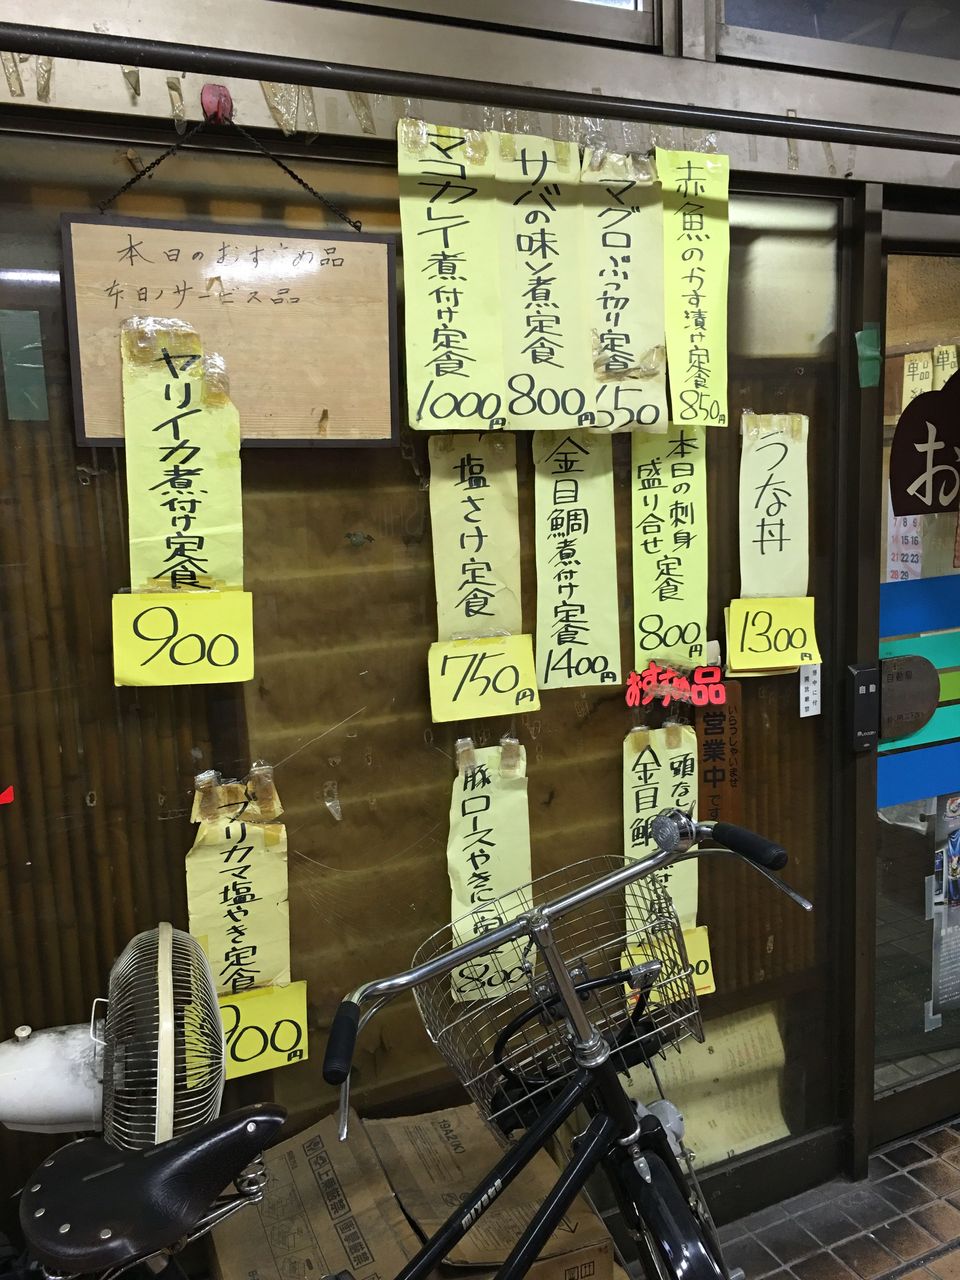 本日のおすすめ品
本日ノサービス品
ヤリイカ煮付け定食
900
マコカレイ煮付け定食
1000円
サバの味ソ煮定食
800円
マグロぶつ切り定食
650
赤魚のかす漬け定食
850円
塩さけ定食
750円
金目鯛煮付け定食
1400円
本日の刺身
盛り合せ定食
800円
おすすめ品
うな丼
1300円
いらっしゃいませ
営業中です
ブリカマ塩やき定食
900円
豚ロースやきに
800
頭なし
金目鯛
自動
お
単品
7 8
14 15 16
21 22 23
28 29
MIYATA